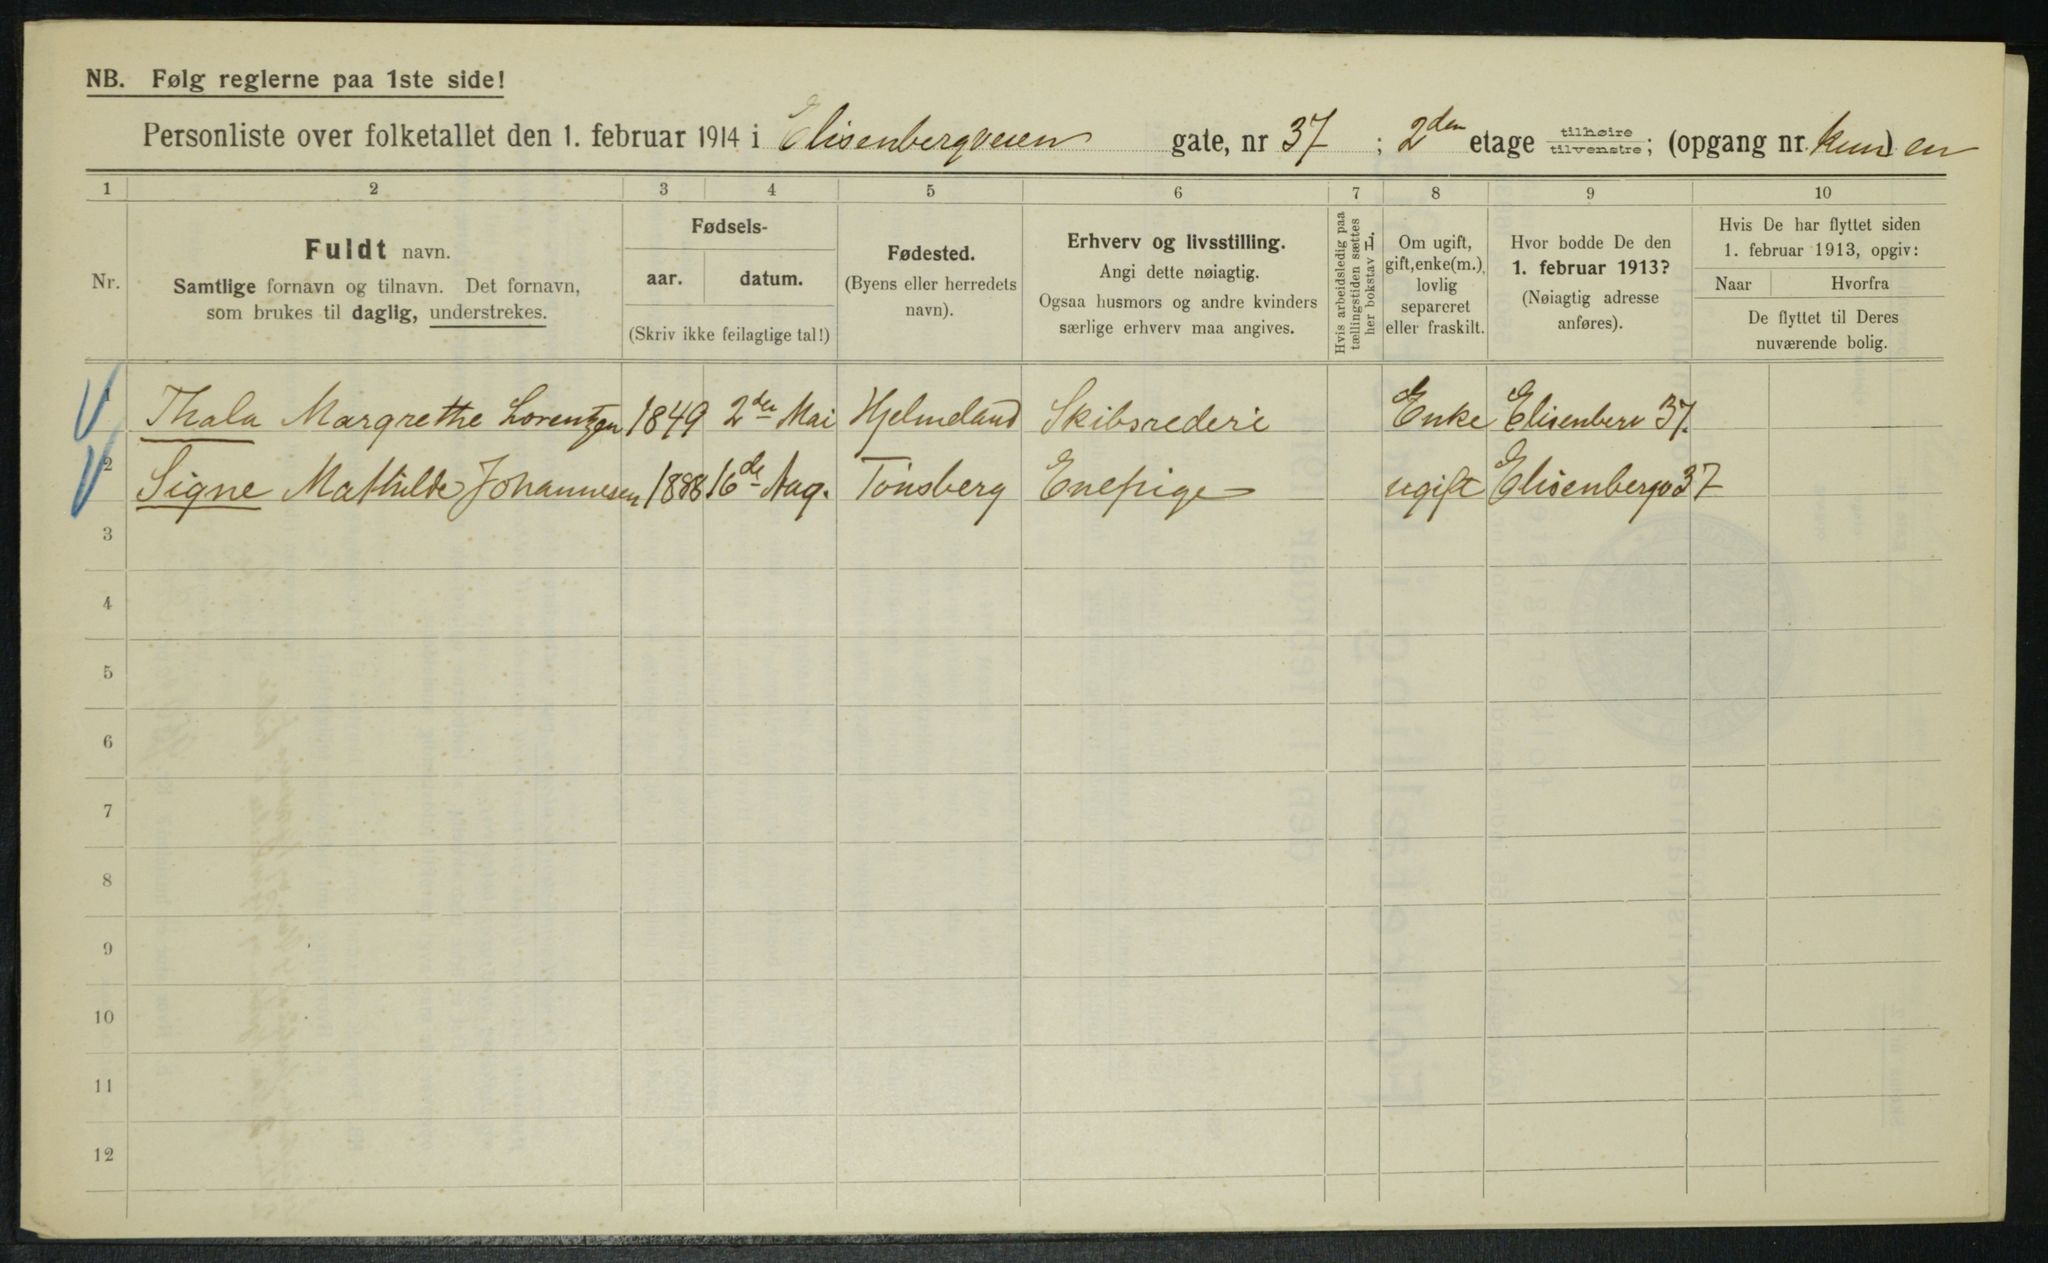 NB. Følg reglerne paa 1ste side!
Personliste over folketallet den 1. februar 1914 i Elisenbergveien gate, nr 37 ; 2den etage tilhøire tilvenstre; (opgang nr. kun) en
1 2 3 4 5 6 7 8 9 10
Nr.
Fuldt navn.
Samtlige fornavn og tilnavn. Det fornavn,
som brukes til daglig, understrekes.
Fødsels-
aar. datum.
(Skriv ikke feilagtige tal!)
Fødested.
(Byens eller herredets
navn).
Erhverv og livsstilling.
Angi dette nøiagtig.
Ogsaa husmors og andre kvinders
særlige erhverv maa angives.
Hvis arbeidsledig paa
tællingstiden sættes
her bokstav L.
Om ugift,
gift, enke(m.),
lovlig
separeret
eller fraskilt.
Hvor bodde De den
1. februar 1913?
(Nøiagtig adresse
anføres).
Hvis De har flyttet siden
1. februar 1913, opgiv:
Naar Hvorfra
De flyttet til Deres
nuværende bolig.
1 Thala Margrethe Lorentzen 1849 2den Mai Hjelmeland Skibsrederi Enke Elisenberv 37.
2 Signe Mathilde Johannesen 1888 16de Aug. Tönsberg Enepige ugift Elisenbergv 37
3
4
5
6
7
8
9
10
11
12